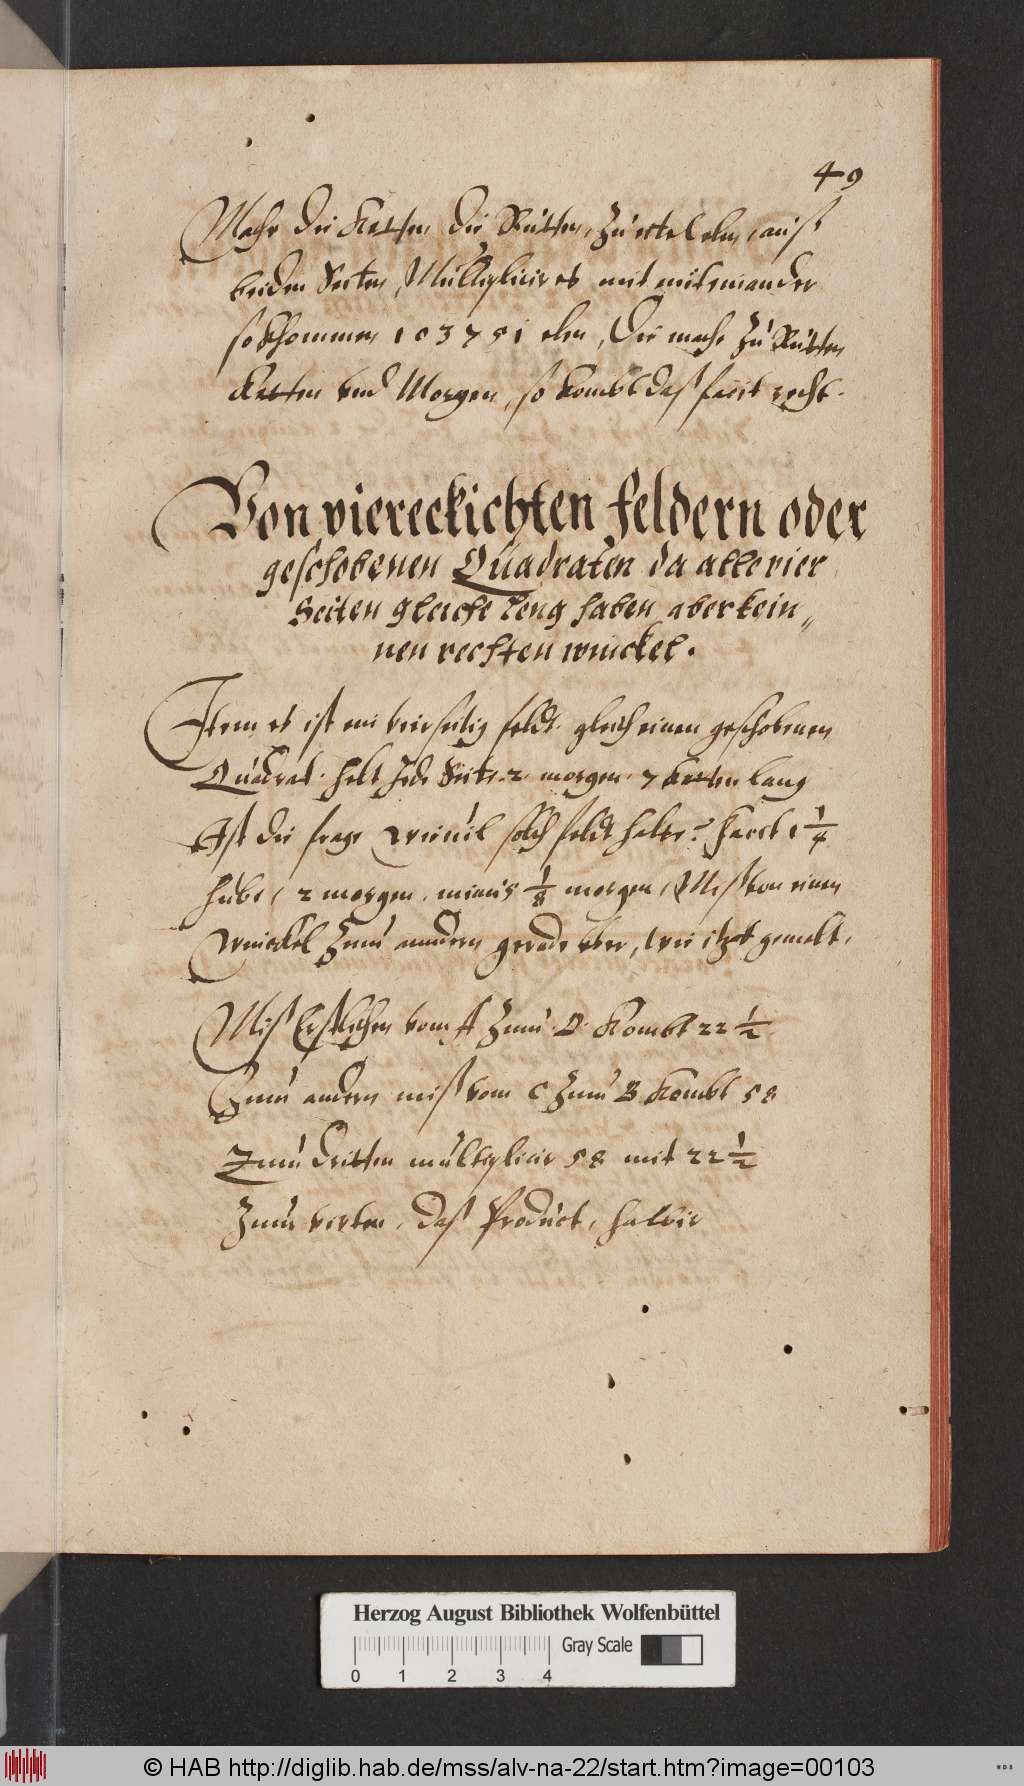 49
Mache die Ketten die Rutten, zu eitel eln, auß
beiden Seiten, Multiplicir es mit miteinander
so khommen 103751 eln, Die mache zu Rutten
Ketten vnd Morgen, so kombt daß facit recht.
Von viereckichten feldern oder
geschobenen Quadraten da alle vier
Seiten gleiche leng haben aber kein„
nen rechten winckel.
Item es ist ein vierseitig feldt gleich einen geschobenen
Quadrat. helt Jede Seite. 2. morgen. 7 ketten lang
Ist die frage wieuil solch feldt halte? facit 1 1/4
hube, 2 morgen, minus 1/8 morgen, Meß von einen
winckel zum anndern gerade vber, wie itzt gemelt.
Miß Erstlichen vom A zum D. Kombt 22 1/2
Zum andern miß vom C zum B Kombt 58
Zum dritten multiplicir 58 mit 22 1/2
Zum vierten, daß Product, halbir
Herzog August Bibliothek Wolfenbüttel
Gray Scale
0 1 2 3 4
© HAB http://diglib.hab.de/mss/alv-na-22/start.htm?image=00103